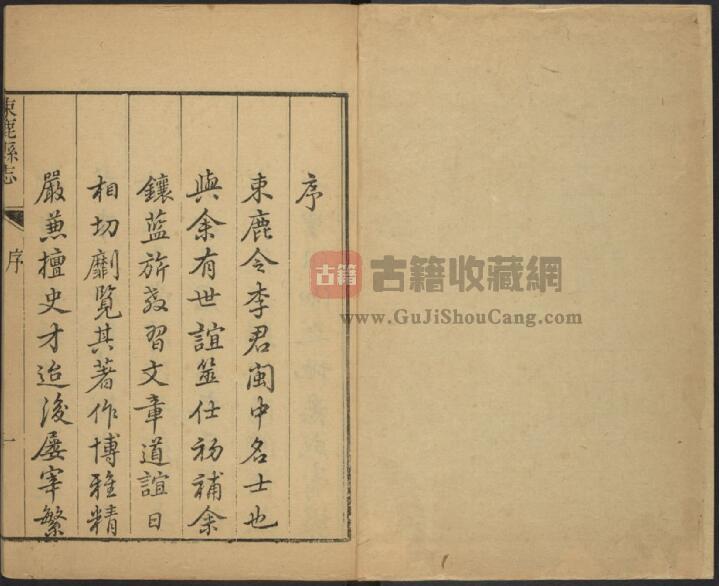 序
束鹿令李君閩中名士也
與余有世誼筮仕初補余
鑲藍旂教習文章道誼日
相切劘覽其著作博雅精
嚴兼擅史才迨後屢宰繁
束鹿縣志
序
一
古籍
古籍收藏網
www.GuJiShouCang.com